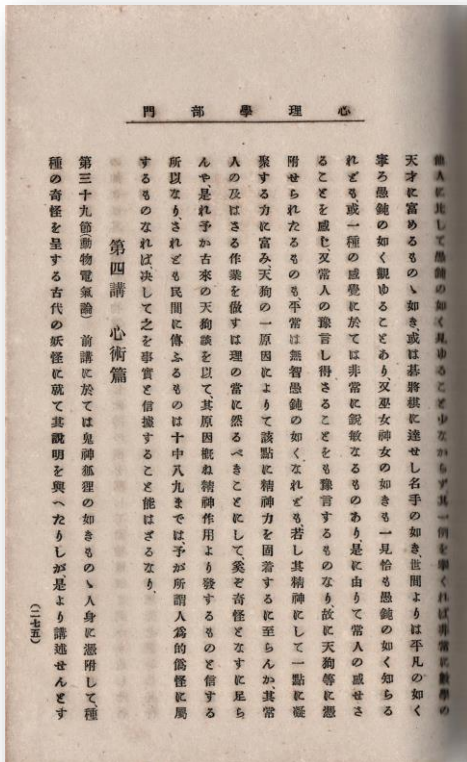 心理學部門
他人に比して愚鈍の如く見ゆること少なからず其一例を擧くれは非常に數學の
天才に富めるものゝ如き或は碁將棋に達せし名手の如き、世間よりは平凡の如く
寧ろ愚鈍の如く觀ゆることあり、又巫女神女の如きも一見恰も愚鈍の如く知らる
れども或一種の感覺に於ては非常に鋭敏なるものあり、是に由りて常人の感せさ
ることを感し、又常人の豫言し得さることをも豫言するものなり、故に天狗等に憑
附せられたるものも、平常は無智愚鈍の如くなれども、若し其精神にして一點に凝
聚する力に富み、天狗の一原因によりて該點に精神力を固着するに至らんか、其常
人の及はさる作業を做すは理の當に然るべきことにして、奚ぞ奇怪となすに足ら
んや、是れ予か古來の天狗談を以て、其原因概ね精神作用より發するものと信する
所以なり、されども民間に傳ふるものは十中八九までは、予が所謂人爲的僞怪に屬
するものなれば決して之を事實と信據すること能はざるなり、
第四講 心術篇
第三十九節(動物電氣論) 前講に於ては鬼神狐狸の如きものゝ人身に憑附して、種
種の奇怪を呈する古代の妖怪に就て其説明を與へたりしが是より講述せんとす
(二七五)